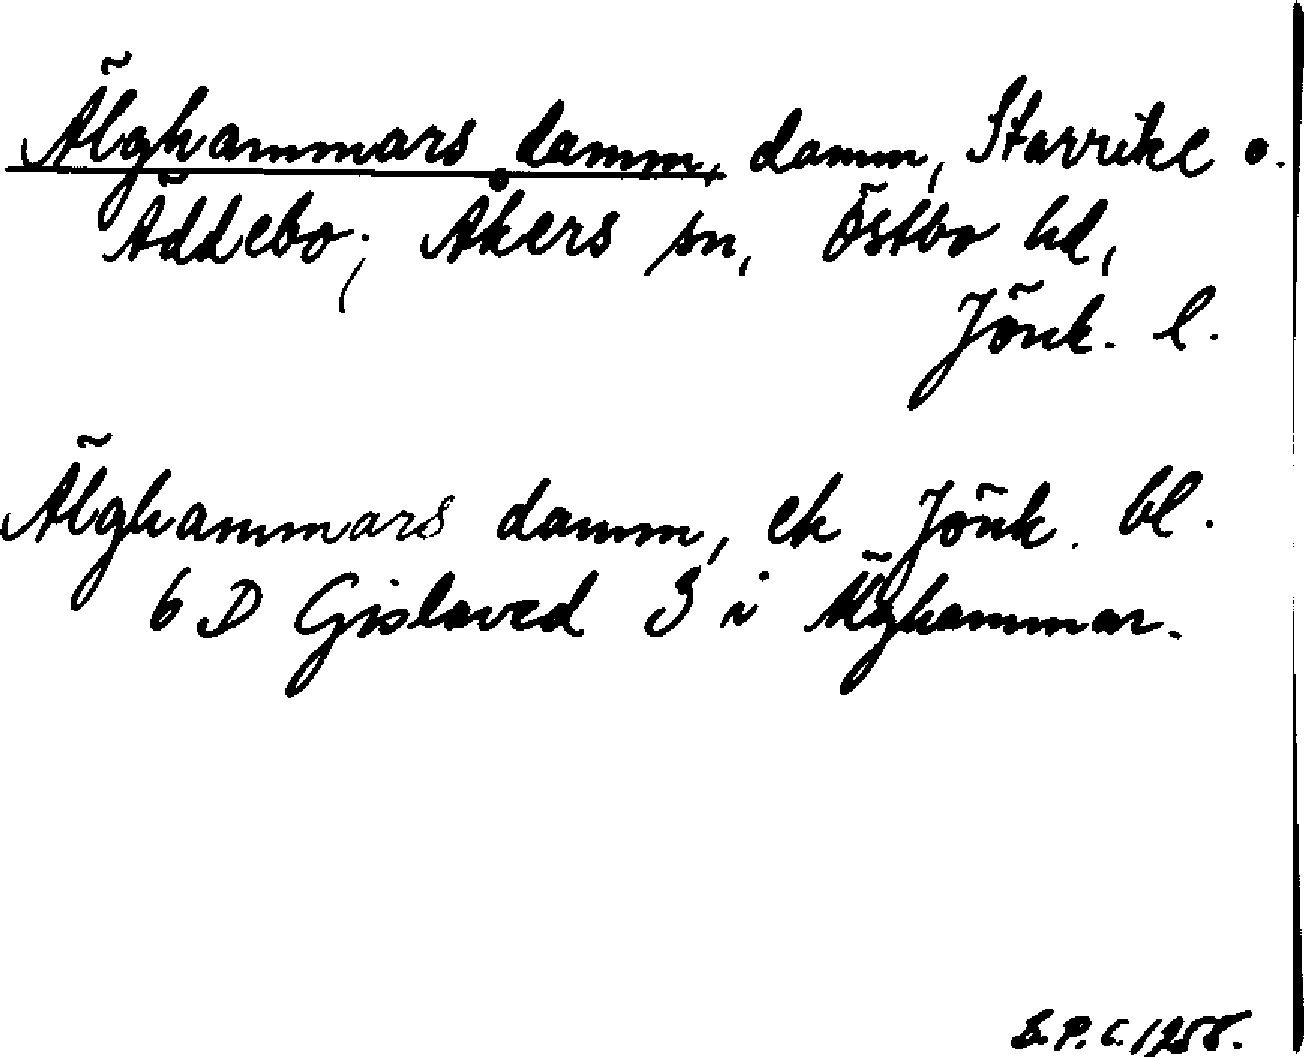 Älghammars damm, damm, Starrike o.
Äddebo; Åkers sn, Östbo hd,
Jönk. l.
Älghammars damm, ek Jönk. bl.
6 D Gislaved 3 i Älghammar.
B.P.C. 1958.